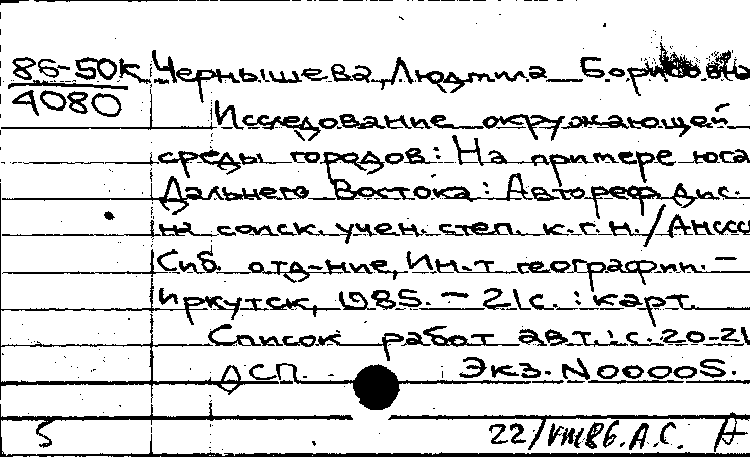 86-50К Чернышева, Людмила Борисовна
4080
Исследование окружающей
среды городов: На примере юга
Дальнего Востока: Автореф. дис.
на соиск. учен. степ. к.г.н./АН СССР
Сиб. отд-ние, Ин-т географии. –
Иркутск, 1985. – 21с. : карт.
Список работ авт.: с. 20-21
ДСП. Экз. N 00005.
5 22/VIII86. А.С. А